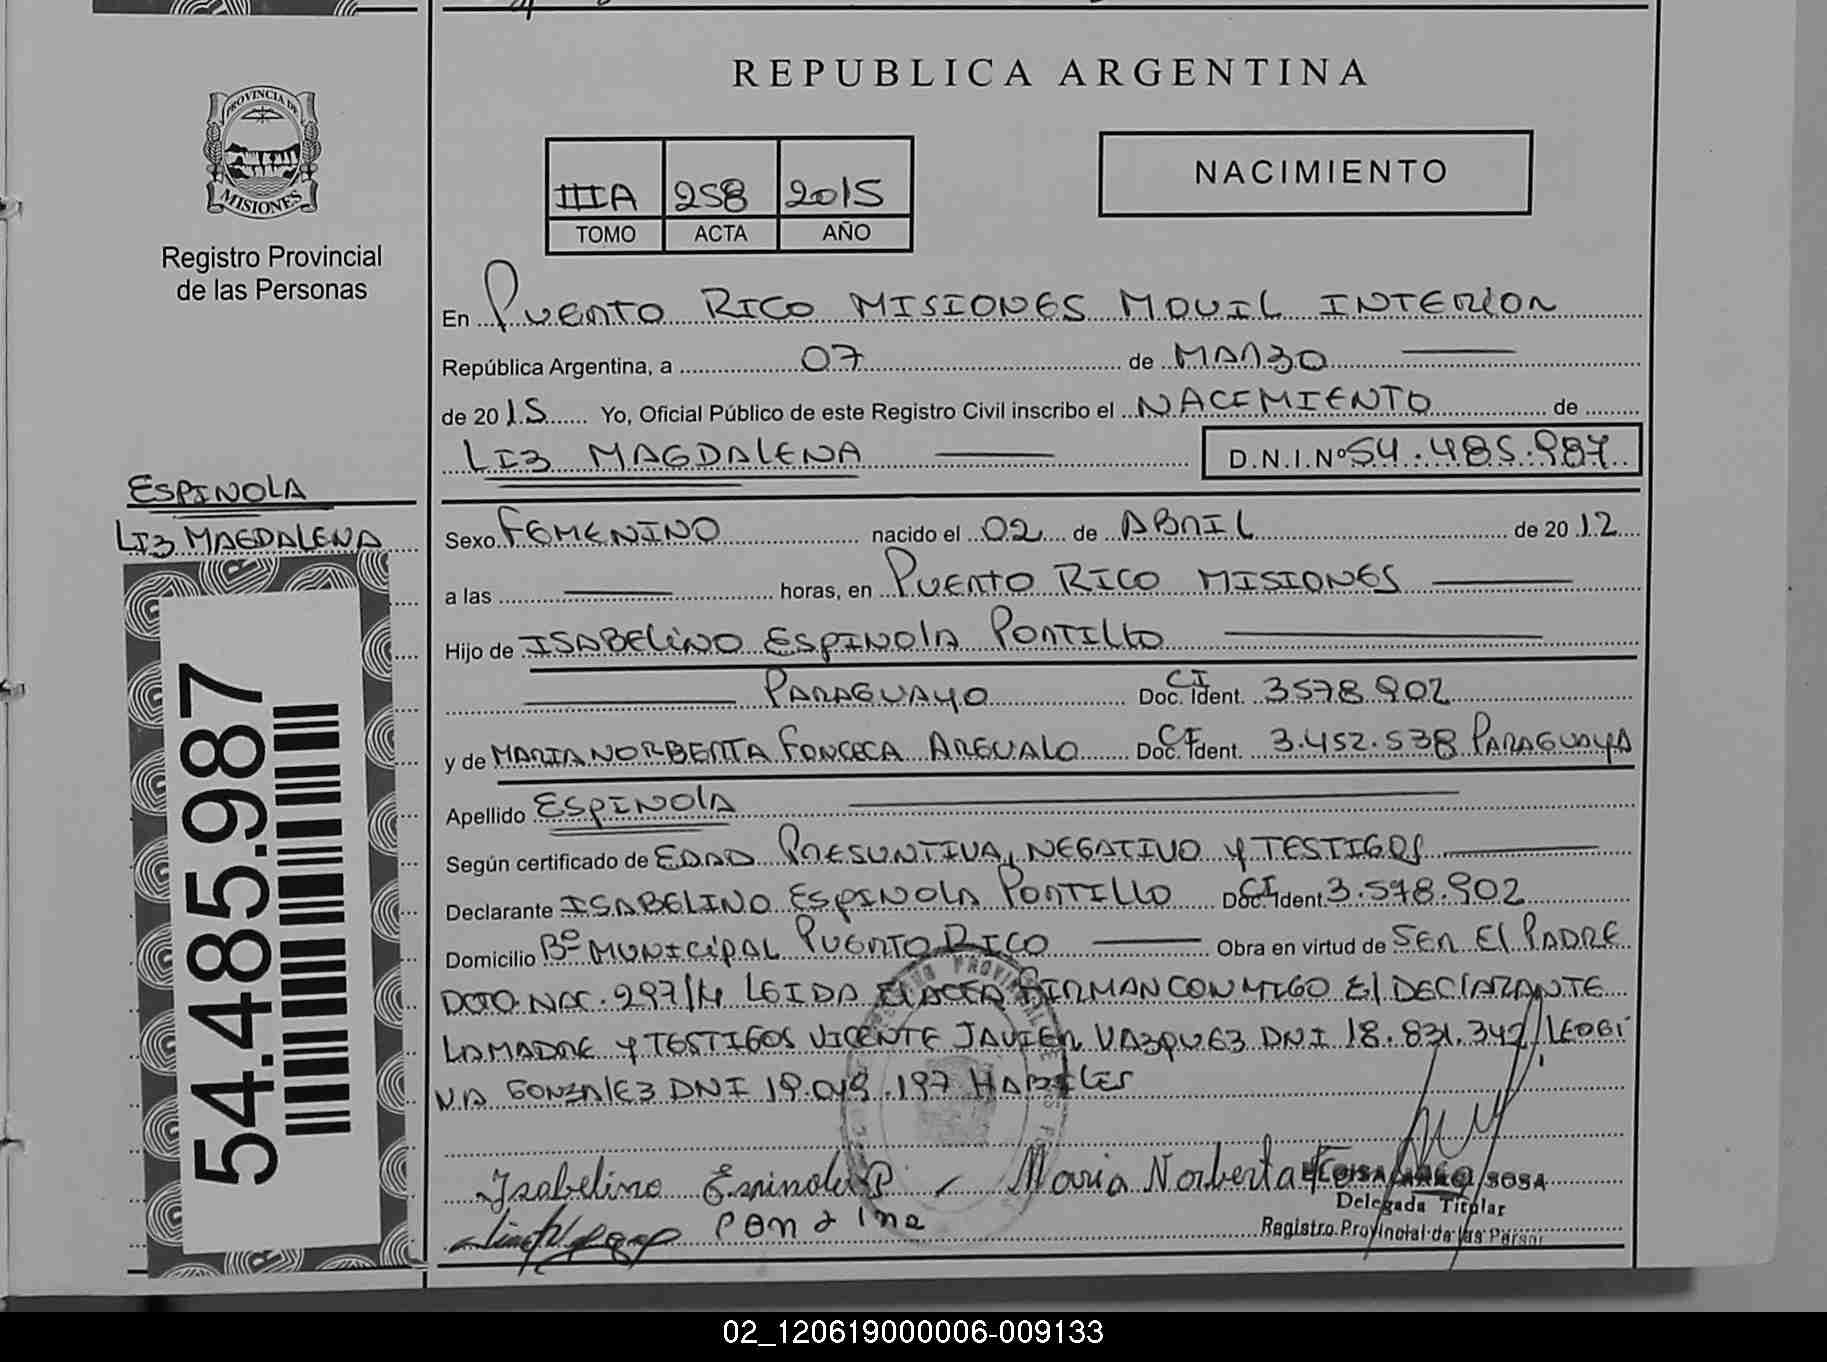 REPUBLICA ARGENTINA
PROVINCIA DE
MISIONES
Registro Provincial
de las Personas
NACIMIENTO
IIIA 258 2015
TOMO ACTA AÑO
En PUERTO RICO MISIONES MOVIL INTERIOR
República Argentina, a 07 de MARZO
de 2015 Yo, Oficial Público de este Registro Civil inscribo el NACIMIENTO de
LIZ MAGDALENA D.N.I.Nº 54.485.987
ESPINOLA
LIZ MAGDALENA
54.485.987
Sexo FEMENINO nacido el 02 de ABRIL de 2012
a las horas, en PUERTO RICO MISIONES
Hijo de ISABELINO ESPINOLA PORTILLO
PARAGUAYO Doc. Ident. CI 3578.902
y de MARIA NORBERTA FONCECA AREVALO Doc. Ident. CI 3.452.538 PARAGUAYA
Apellido ESPINOLA
Según certificado de EDAD PRESUNTIVA, NEGATIVO Y TESTIGOS
Declarante ISABELINO ESPINOLA PORTILLO Doc. Ident. CI 3.578.902
Domicilio Bº MUNICIPAL PUERTO RICO Obra en virtud de SER EL PADRE
DCTO NAC. 297/14 LEIDA EL ACTA FIRMAN CONMIGO El DECLARANTE
LA MADRE Y TESTIGOS VICENTE JAVIER VAZQUEZ DNI 18.831.342 LEOBI
NA GONZALEZ DNI 19.049.197 HABILES
Isabelino Espinola P. Maria Norberta SOSA
Delegada Titular
Registro Provincial de las Person
02_120619000006-009133